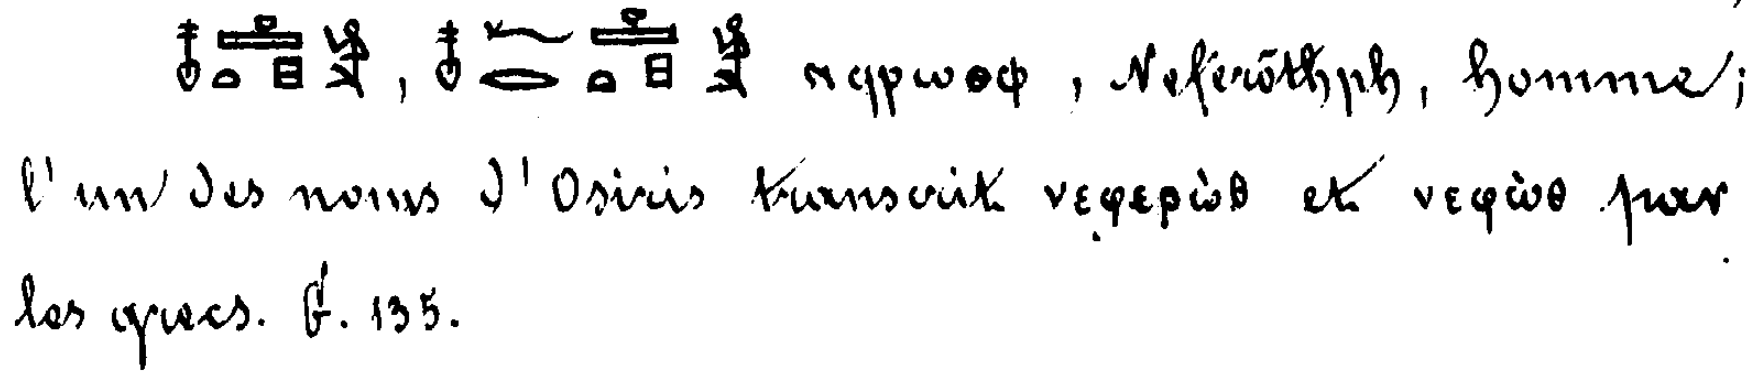 𓄤𓊵𓏏𓊪𓀀, 𓄤𓆑𓂋𓊵𓏏𓊪𓀀 ⲛϥⲣⲱⲑⲫ, Neferōthph, homme;
l'un des noms d'Osiris transcrit νεφερὼθ et νεφὼθ par
les grecs. G. 135.